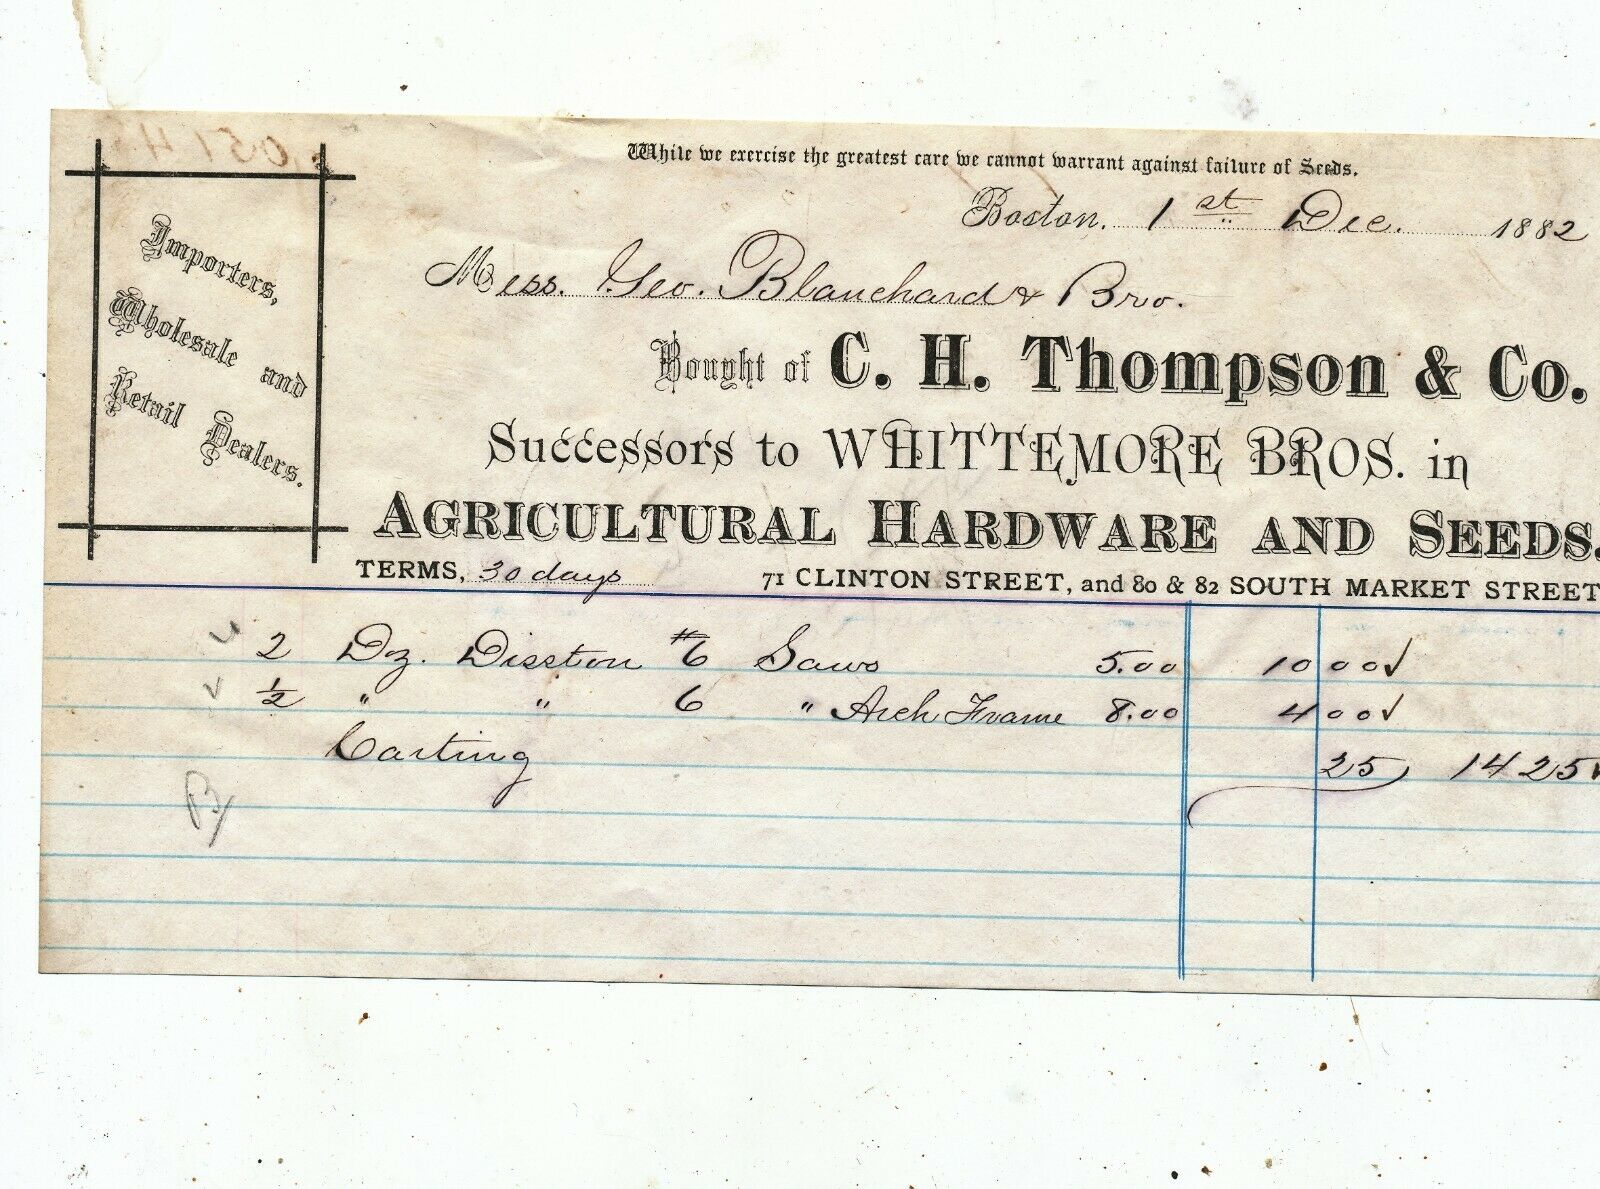 While we exercise the greatest care we cannot warrant against failure of Seeds.
Boston, 1st Dec. 1882
Mess. Geo. Blanchard & Bro.
Bought of C. H. Thompson & Co.
Successors to WHITTEMORE BROS. in
AGRICULTURAL HARDWARE AND SEEDS.
Importers,
Wholesale and
Retail Dealers.
TERMS, 30 days 71 CLINTON STREET, and 80 & 82 SOUTH MARKET STREET
2 Doz. Disston #6 Saws 5.00 10 00 ✓
½ " " 6 " Arch Frame 8.00 4 00 ✓
Carting 25 14 25 ✓